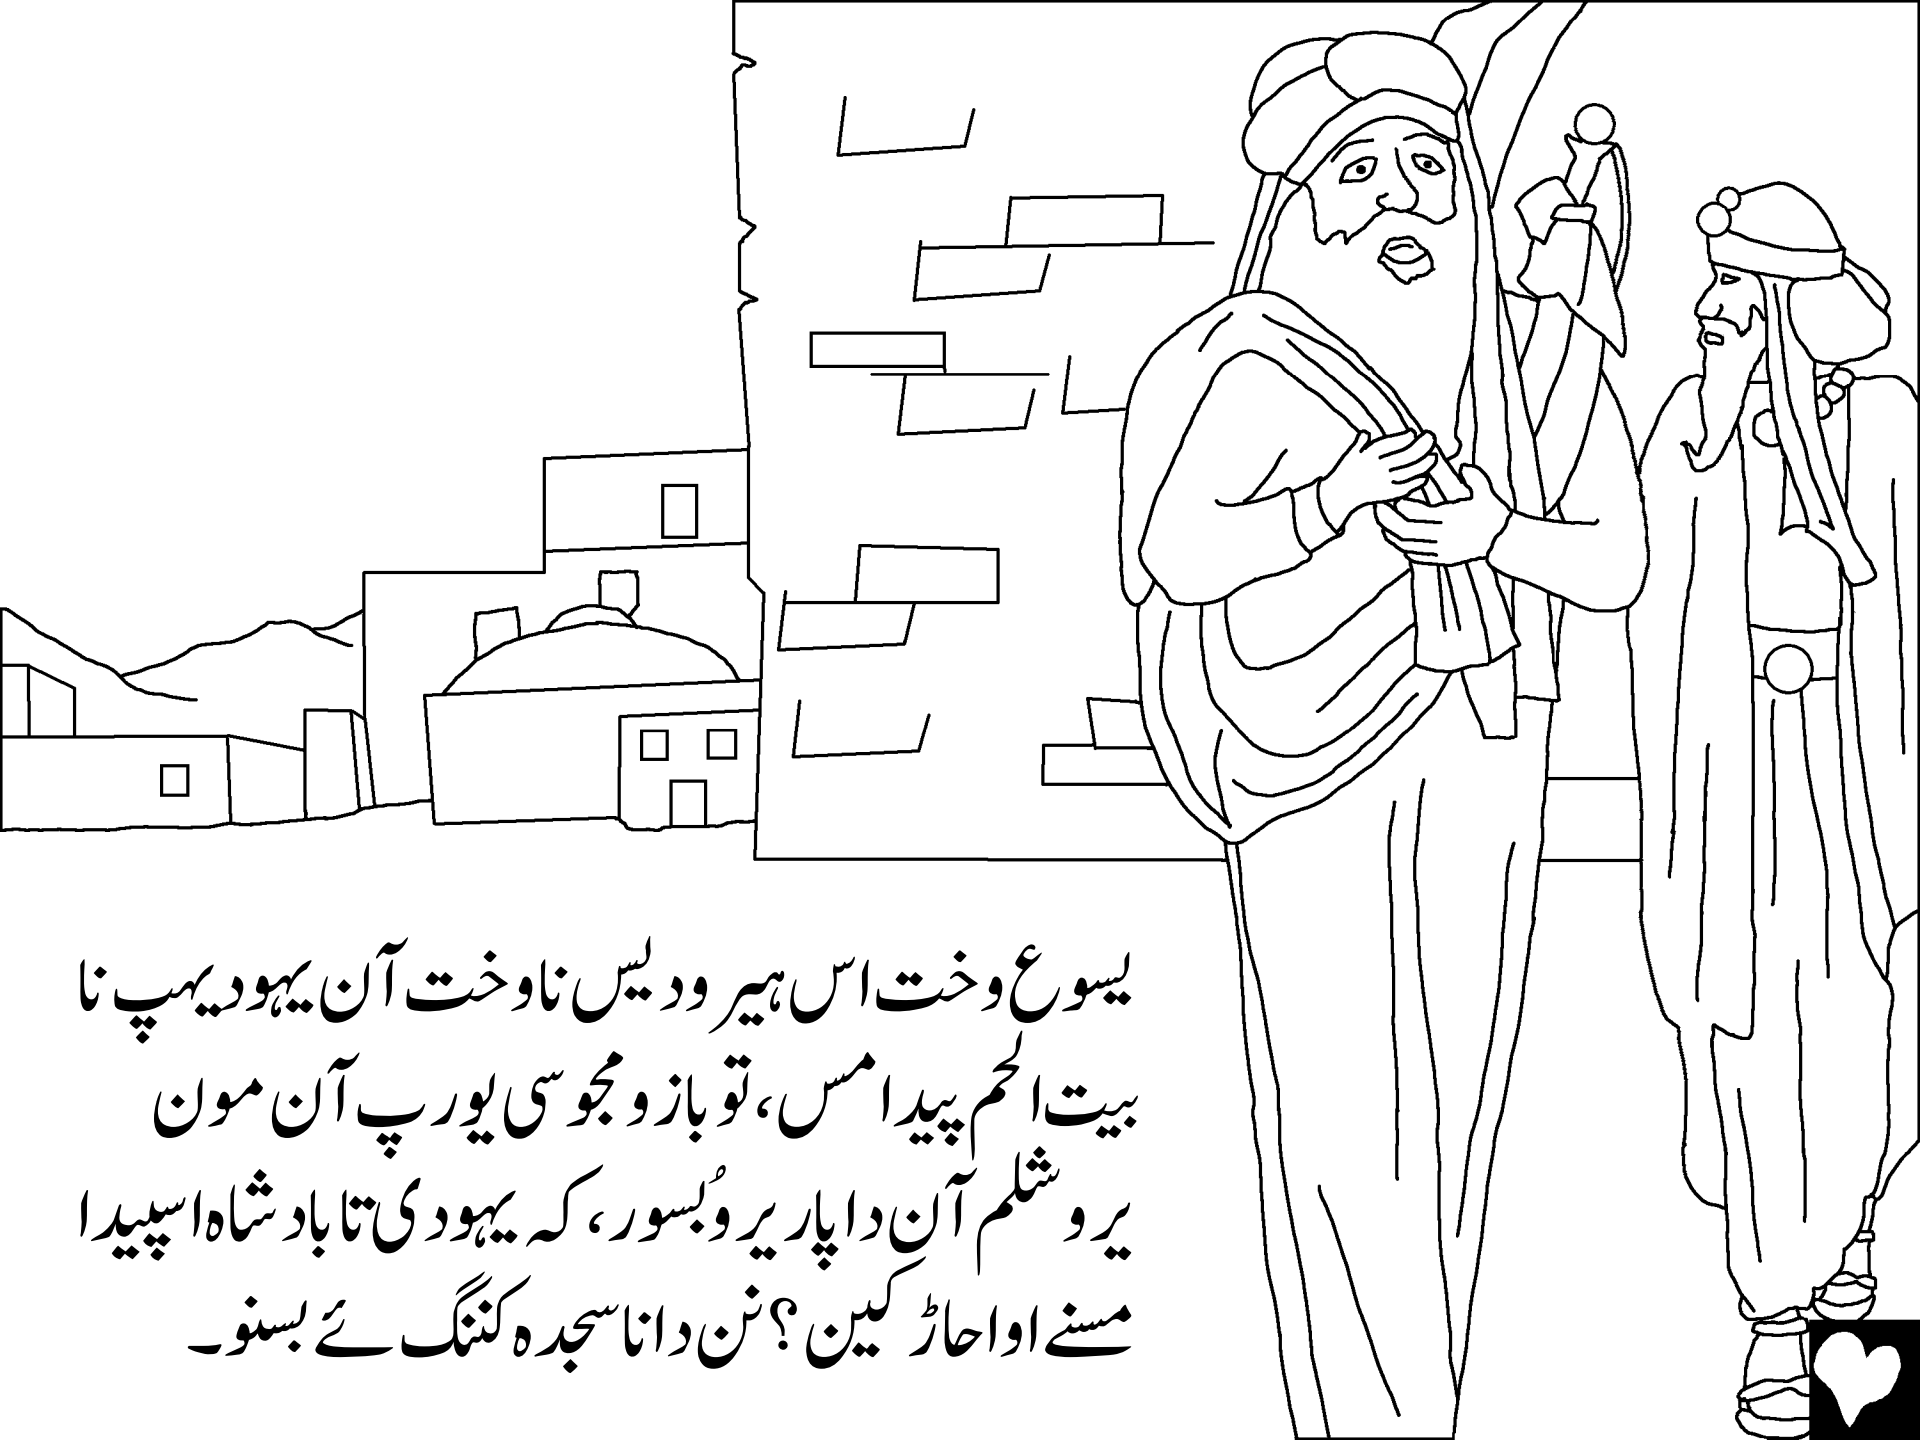 یسوع وخت اس ہیرودیس نا وخت آن یہودیہپ نا
بیت الحم پیدا مس، تو بازو مجوسی یورپ آن مون
یروشلم آن داپار یر وُبسور، کہ یہودی تا بادشاہ اسپیدا
مسنے اواحاڑ کین؟ نن دانا سجدہ کننگ ئے بسنو۔